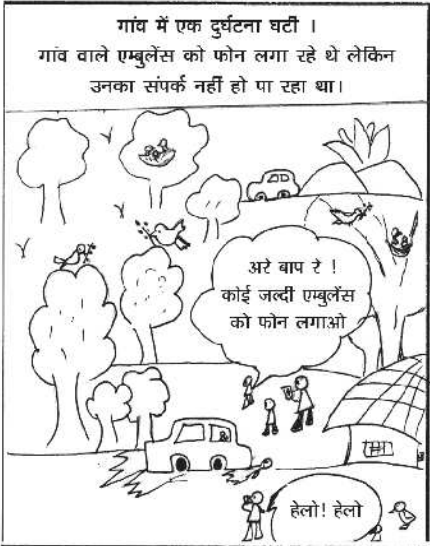 गांव में एक दुर्घटना घटी ।
गांव वाले एम्बुलेंस को फोन लगा रहे थे लेकिन
उनका संपर्क नहीं हो पा रहा था।
अरे बाप रे !
कोई जल्दी एम्बुलेंस
को फोन लगाओ
हेलो! हेलो